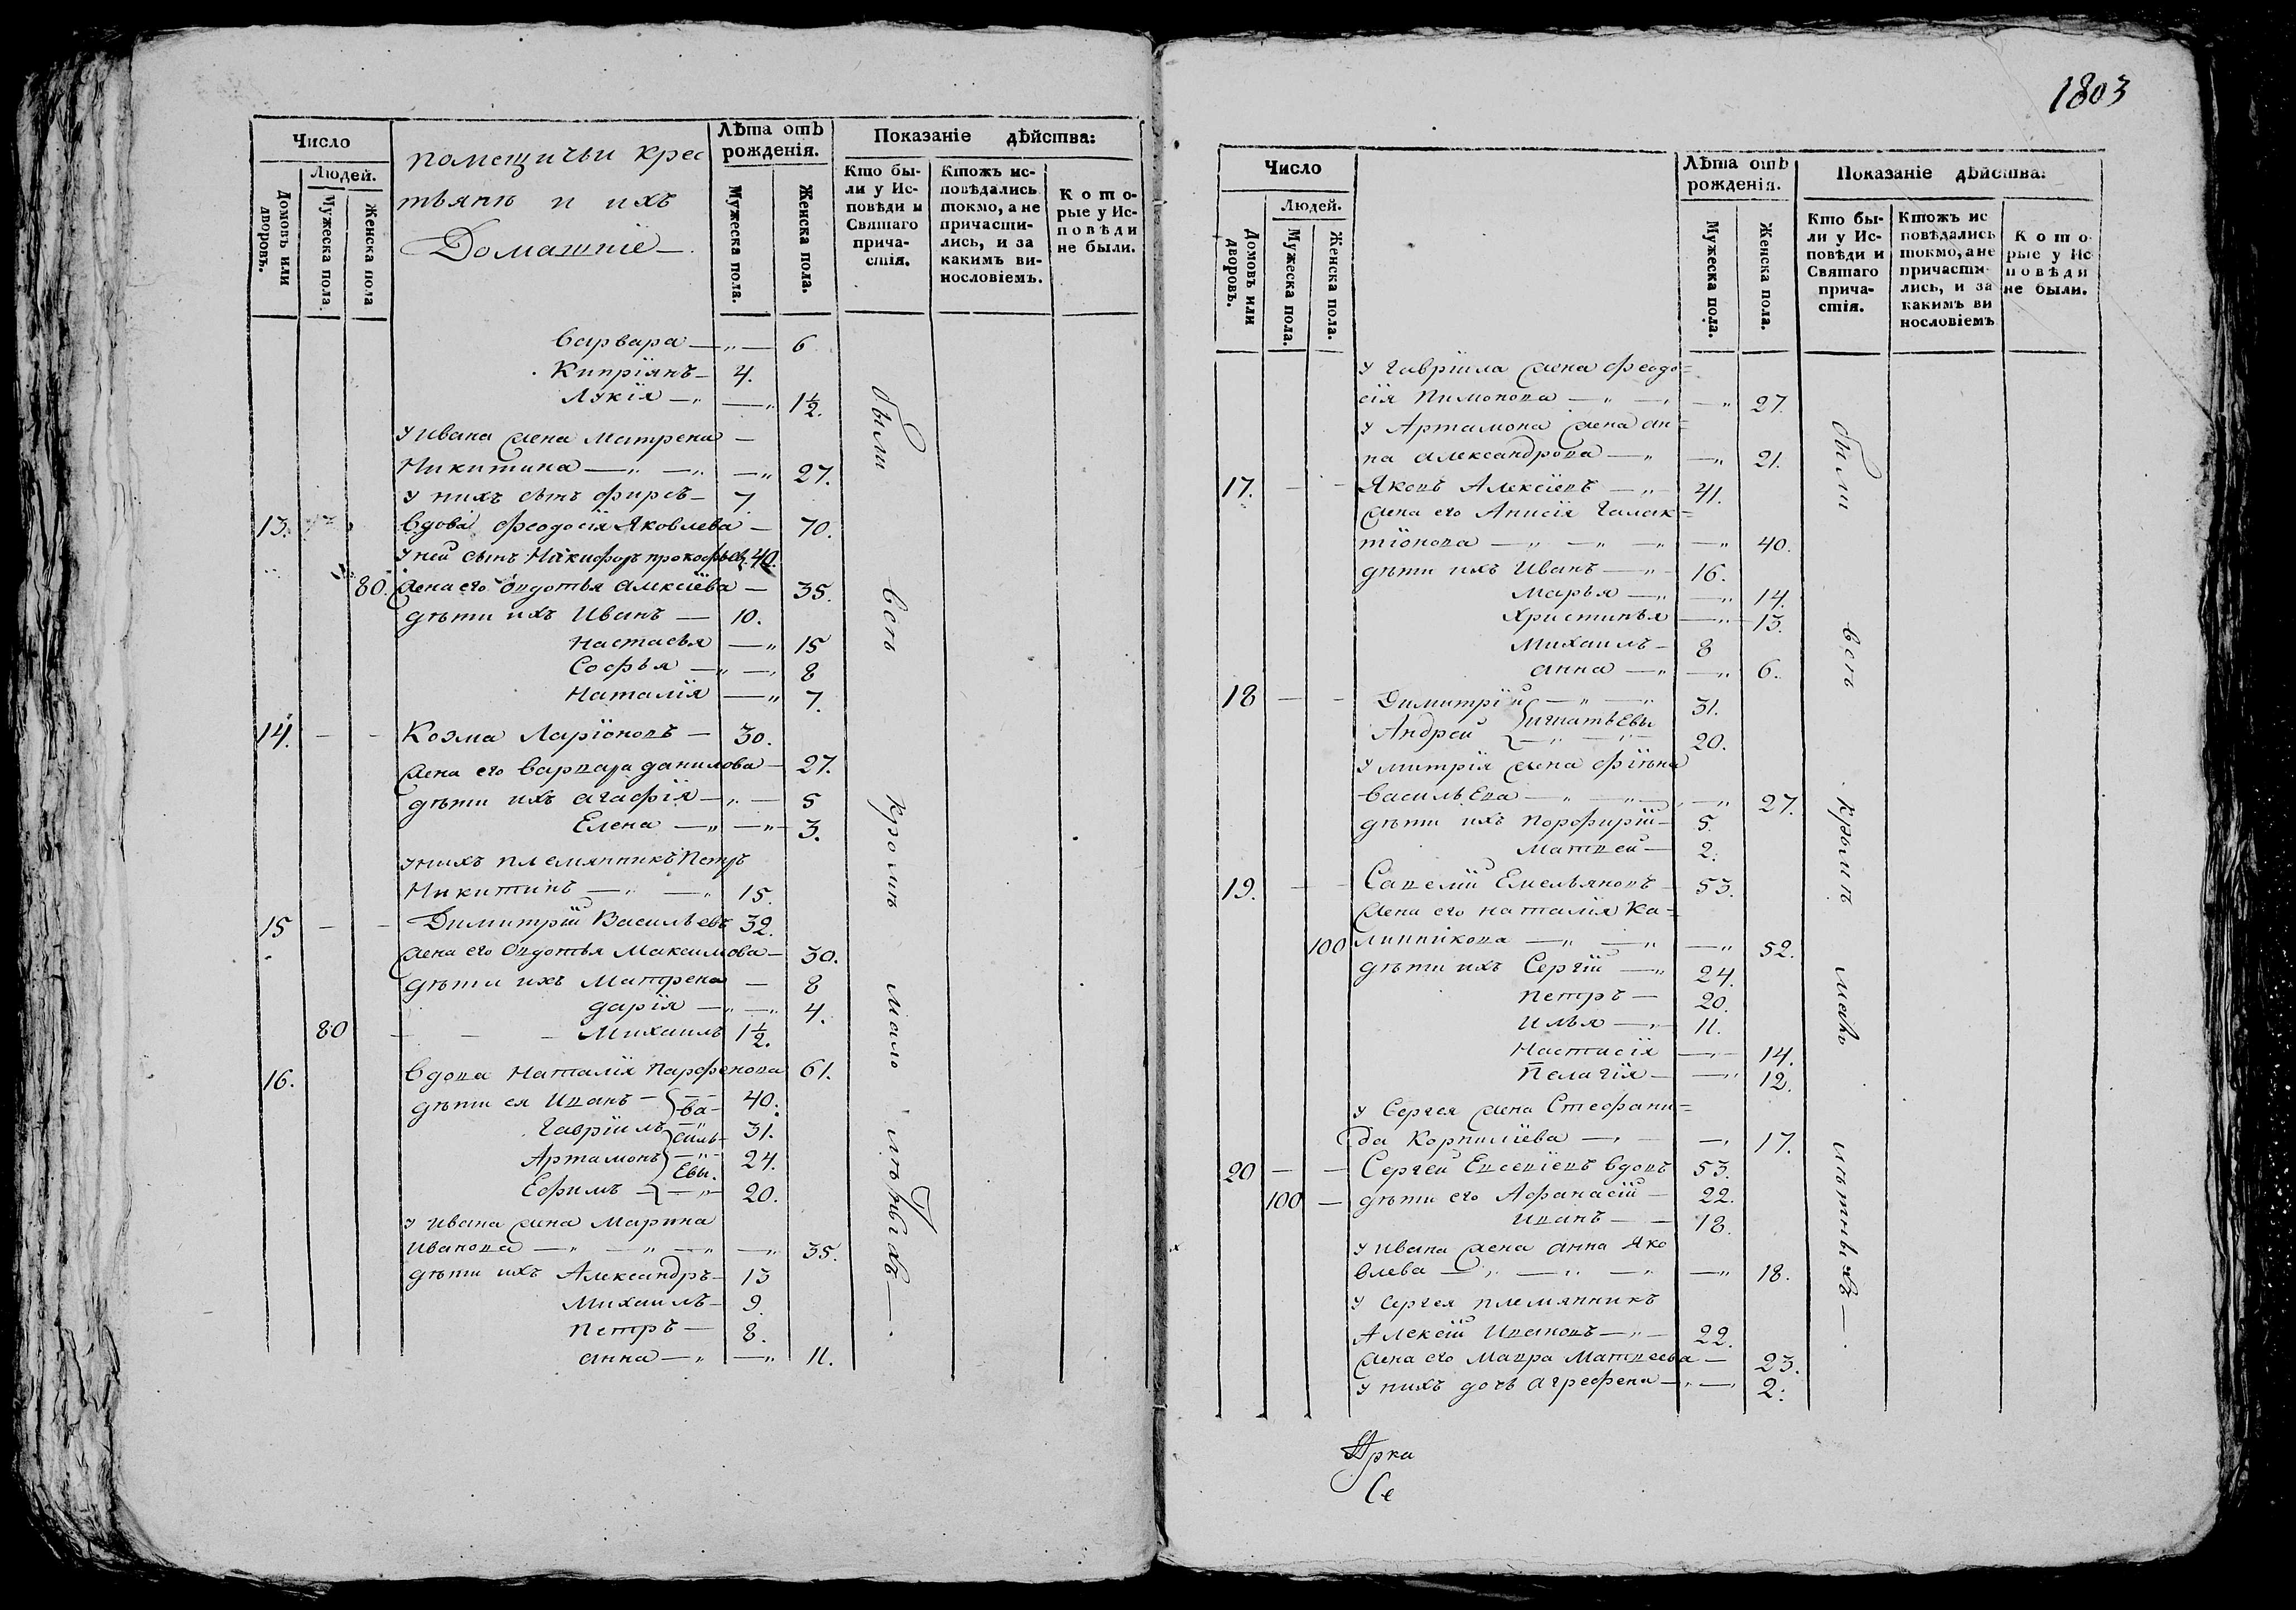 Число
Людей.
Домовъ или дворовъ.
Мужеска пола.
Женска пола
помещичьи крес
тьянѣ и ихъ
Домашніе
Лѣта отъ рожденія.
Мужеска пола.
Женска пола.
Показаніе дѣйства:
Кто бы-
ли у Ис-
повѣди и
Святаго
прича-
стія.
Ктожъ ис-
повѣдались
токмо, а не
причасти-
лись, и за
какимъ ви-
нословіемъ.
К о т о-
рые у Ис-
п о в ѣ д и
не были.
Варвара — 6
Кипріянъ — 4.
Лукія — 1½.
У Ивана жена Матрена —
Никитина — 27.
У нихъ сынъ Фирсъ — 7.
13. Вдова Феодосія Яковлева — 70.
У ней сынъ Никифоръ Прокофьевъ. 40.
80. Жена его Овдотья Алексіева — 35.
дѣти ихъ Иванъ — 10.
Настасья — 15
Софья — 8
Наталія — 7.
14. — — Козма Ларіоновъ — 30.
Жена его Варвара Данилова — 27.
дѣти ихъ Агафія — 5
Елена — 3.
У нихъ племянникъ Петръ
Никитинъ — 15.
15 — — Димитрій Васильевъ 32.
Жена его Овдотья Максимова — 30.
дѣти ихъ Матрена — 8
Дарія — 4.
80 — — — Михаилъ 1½.
16. Вдова Наталія Парфенова 61.
дѣти ея Иванъ — } ва- 40.
Гавріилъ } силь- 31.
Артамонъ } Евы. 24.
Ефимъ — } — 20.
У Ивана жена Марина
Иванова — 35.
дѣти ихъ Александръ — 13
Михаилъ — 9.
Петръ — 8.
Анна — 11.
были всѣ кромѣ мало лѣтныхъ —.
1803
Число
Людей.
Домовъ или дворовъ.
Мужеска пола.
Женска пола.
Лѣта отъ рожденія.
Мужеска пола.
Женска пола.
Показаніе дѣйства:
Кто бы-
ли у Ис-
повѣди и
Святаго
прича-
стія.
Ктожъ ис
повѣдались
токмо, а не
причасти-
лись, и за
какимъ ви
нословіемъ
К о т о-
рые у Ис
п о в ѣ д и
не были.
У Гавріила жена Феодо=
сія Пимонова — 27.
У Артамона жена Ан=
на Александрова — 21.
17. — — Яковъ Алексіевъ — 41.
Жена его Анисія Галак=
тіонова — 40.
дѣти ихъ Иванъ — 16.
Марья — 14.
Христинья — 13.
Михаилъ — 8
Анна — 6.
18 — — Димитрій } — 31.
Андрей } Игнатьевы 20.
У Митрія жена Фіена
Васильева — 27.
дѣти ихъ Порфирій — 5.
Матвей — 2.
19. — — Савелій Емельяновъ — 53.
Жена его Наталія Ка=
100 линникова — 52.
дѣти ихъ Сергій — 24.
Петръ — 20.
Илья — 11.
Настасія — 14.
Пелагія — 12.
У Сергея жена Стефани=
да Корниліева — 17.
20 — — Сергей Евсевіевъ вдовъ 53.
100 — дѣти его Афанасій — 22.
Иванъ — 18.
У Ивана жена Анна Яко
влева — 18.
У Сергея племянникъ
Алексій Ивановъ — 22.
Жена его Мавра Матвеева — 23.
У нихъ дочь Агрефена — 2.
были всѣ кромѣ мало лѣтныхъ —.
Се